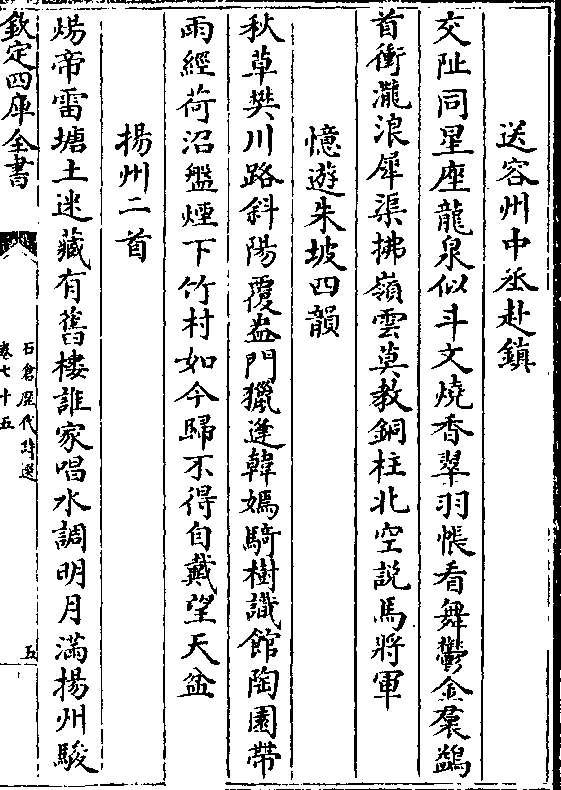 送容州中丞赴鎮
交阯同星座龍泉似斗文燒香翠羽帳看舞鬱金裠鷁
首衝瀧浪犀渠拂嶺雲莫教銅柱北空説馬將軍
憶遊朱坡四韻
秋草樊川路斜陽覆盎門獵逢韓嫣騎樹識館陶園帶
雨經荷沼盤煙下竹村如今歸不得自戴望天盆
揚州二首
煬帝雷塘土迷藏有舊樓誰家唱水調明月滿揚州駿
欽定四庫全書
石倉歴代詩選
卷七十五
五